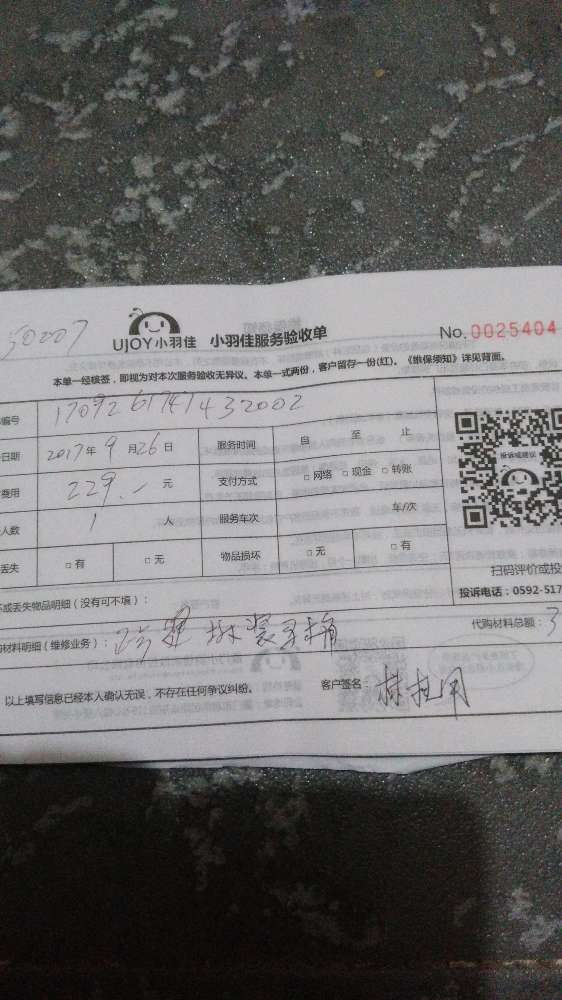 50007
UJOY小羽佳 小羽佳服务验收单 No. 0025404
本单一经核签，即视为对本次服务验收无异议。本单一式两份，客户留存一份(红)。《维保须知》详见背面。
编号 1709261741432002
日期 2017年9月26日 服务时间 自 至 止
费用 229.- 元 支付方式 □网络 □现金 □转账
人数 1 人 服务车次 车/次
丢失 □有 □无 物品损坏 □无 □有
投诉或建议
扫码评价或投
投诉电话：0592-517
坏或丢失物品明细（没有可不填）：
材料明细（维修业务）： 代购材料总额：3
以上填写信息已经本人确认无误，不存在任何争议纠纷。 客户签名：